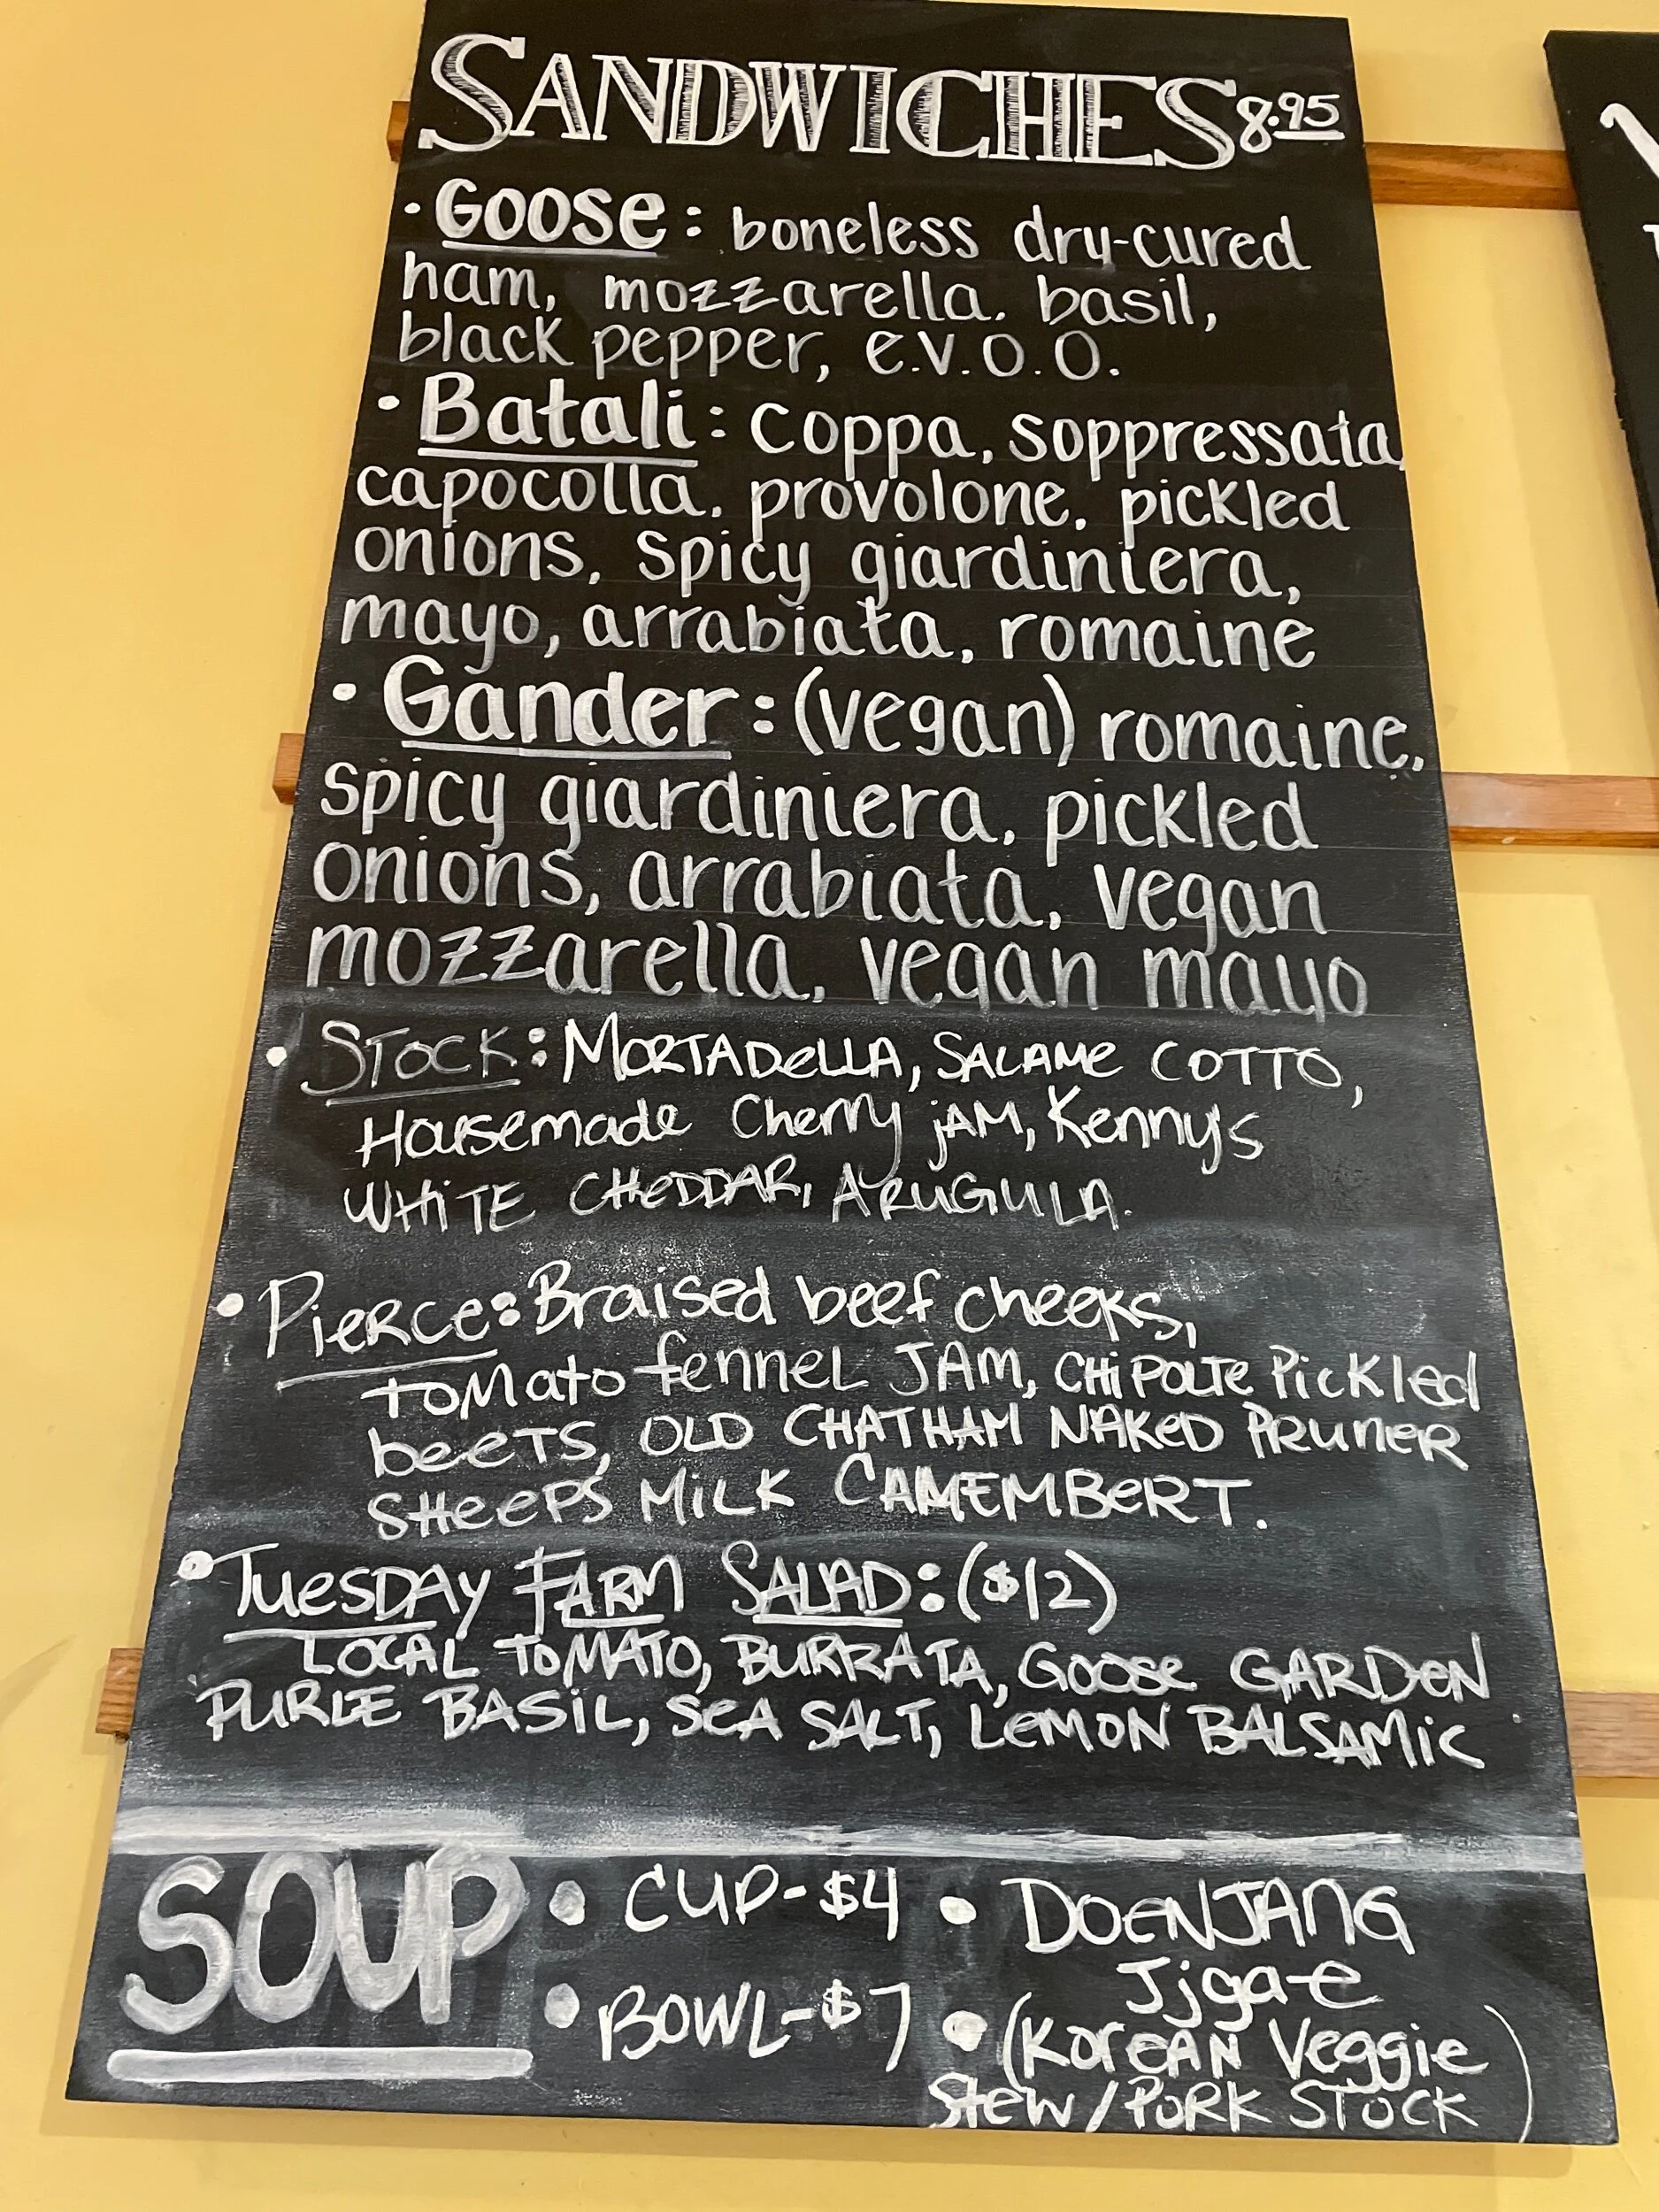 SANDWICHES 8.95
· Goose: boneless dry-cured
ham, mozzarella, basil,
black pepper, e.v.o.o.
· Batali: coppa, soppressata,
capocolla, provolone, pickled
onions, spicy giardiniera,
mayo, arrabiata, romaine
· Gander: (vegan) romaine,
spicy giardiniera, pickled
onions, arrabiata, vegan
mozzarella, vegan mayo
• STOCK: MORTADELLA, SALAME COTTO,
Housemade Cherry JAM, Kennys
WHITE CHEDDAR, ARUGULA.
• PIERCE: Braised beef cheeks,
TOMATO fennel JAM, CHIPOLTE Pickled
beets, OLD CHATHAM NAKED PRUNER
SHEEPS MILK CAMEMBERT.
• TUESDAY FARM SALAD: ($12)
LOCAL TOMATO, BURRATA, GOOSE GARDEN
PURLE BASIL, SEA SALT, LEMON BALSAMIC
SOUP • CUP-$4 • DOENJANG
Jjgae
• BOWL-$7 • (KOREAN Veggie
Stew/PORK STOCK)